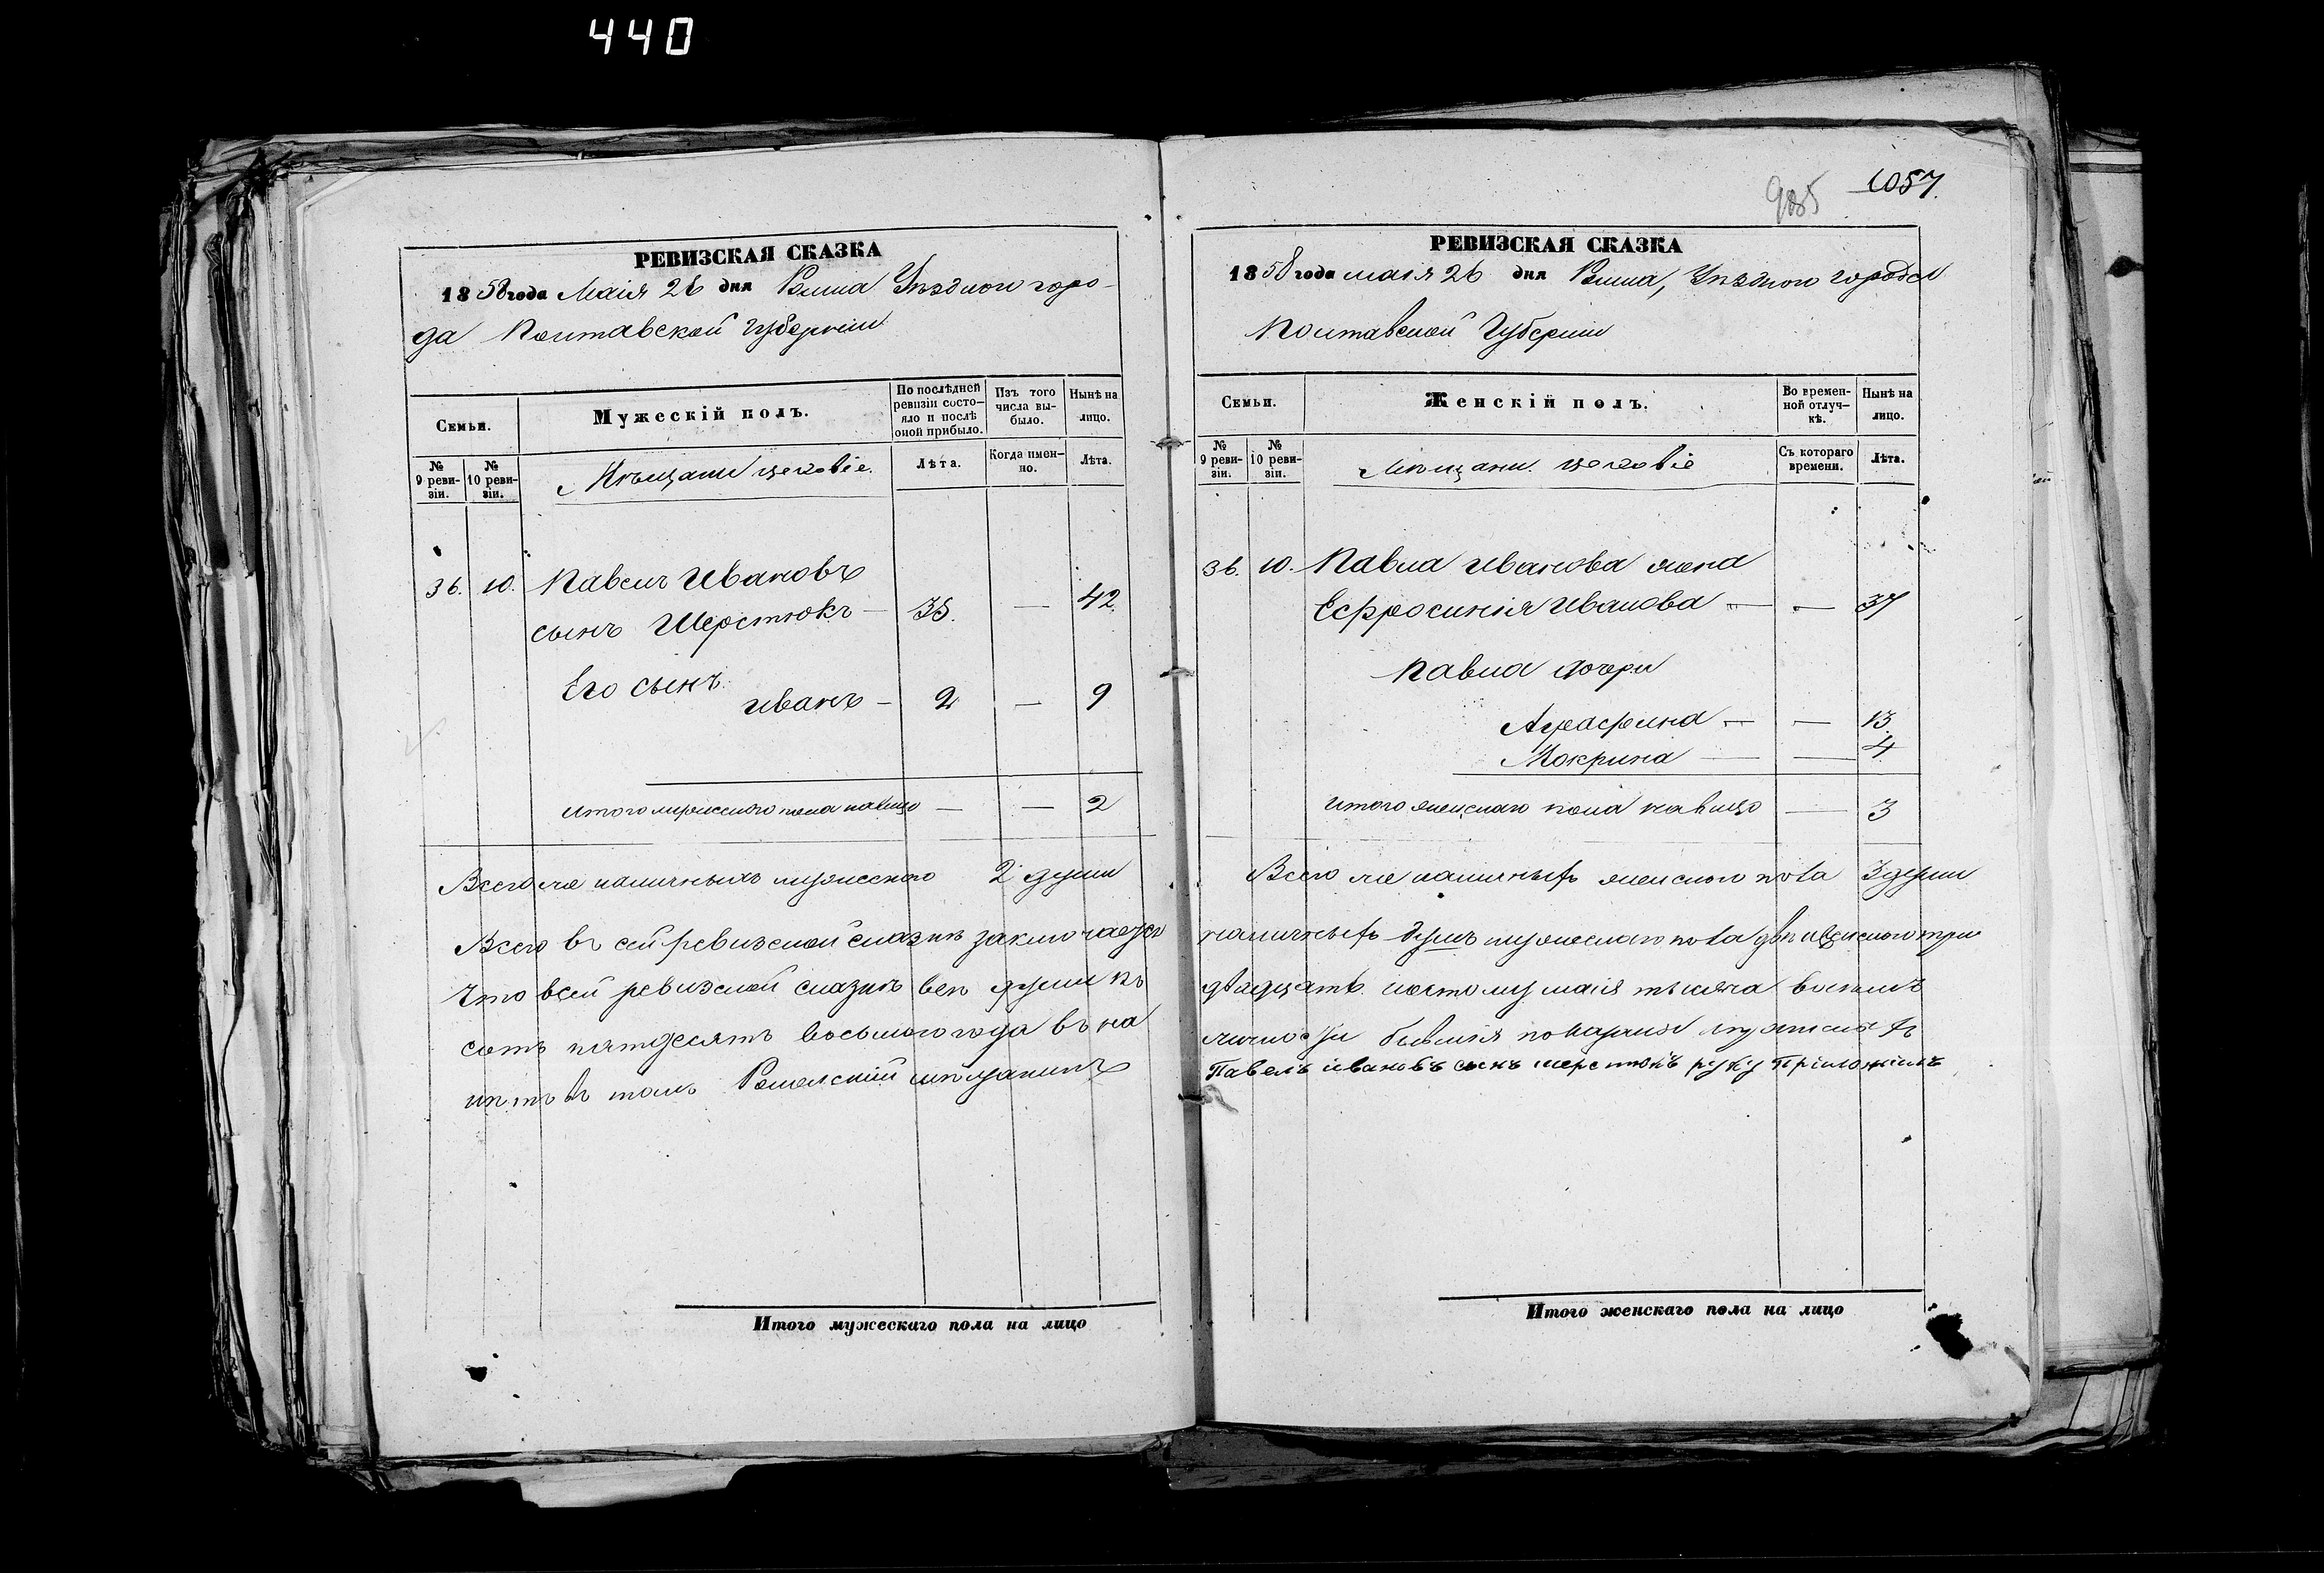 440
985 1057.
РЕВИЗСКАЯ СКАЗКА
1858 года Маія 26 дня Ромна Уѣзднаго горо-
да Полтавской губерніи
Семьи.
Мужескій полъ.
По послѣдней ревизіи состо-яло и послѣ оной прибыло.
Изъ того числа вы-было.
Нынѣ на лицо.
№ 9 реви-зіи.
№ 10 реви-зіи.
Мѣщани цеховіе.
Лѣта.
Когда имен-но.
Лѣта.
36. 10. Павелъ Ивановъ
сынъ Шерстюкъ — 35. — 42.
Его сынъ
Иванъ — 2 — 9
Итого мужескаго пола налицо — — 2
Всего же наличныхъ мужескаго 2 души
Всего въ сей ревизской сказкѣ заключается
Что всей ревизской сказкѣ всѣ души къ
сотъ пятдесятъ восьмого года въ на
нѣтъ въ томъ Роменскій мѣщанинъ
Итого мужескаго пола на лицо
РЕВИЗСКАЯ СКАЗКА
1858 года маія 26 дня Ромна, Уѣзднаго города
Полтавской Губерніи
Семьи.
Женскій полъ.
Во времен-ной отлуч-кѣ.
Нынѣ на лицо.
№ 9 реви-зіи.
№ 10 реви-зіи.
Мѣщани. цеховіе
Съ котораго времени.
Лѣта.
36. 10. Павла Иванова жена
Ефросинія Иванова — — 37
Павла дочери
Аграфина — — 13.
Мокрина — — 4.
Итого женскаго пола налицо — 3
Всего же наличныхъ женскаго пола 3 души
наличныхъ душъ мужескаго пола двѣ и женскаго три
двадцать шестому маія тысяча восемъ
личности бывшія показаны
Павелъ ивановъ сынъ шерстюкъ руку пріложілъ
Итого женскаго пола на лицо